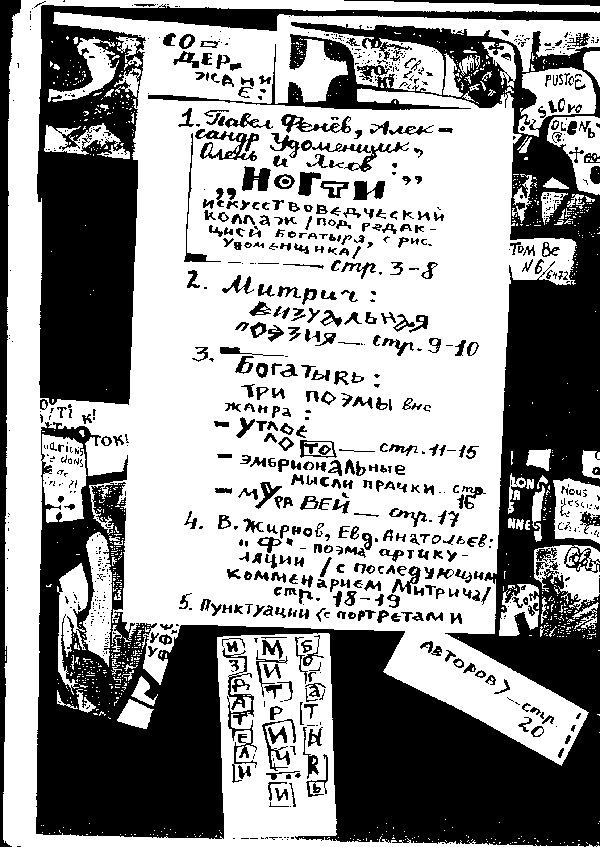 СО-
ДЕР-
ЖАНИ
Е:
1. Павел Фенёв, Алек-
сандр Удоменщик,
Олень и Яков:
„НОГТИ"
ИСКУССТВОВЕДЧЕСКИЙ
КОЛЛАЖ /ПОД РЕДАК-
ЦИЕЙ БОГАТЫРЯ, С РИС.
УДОМЕНЩИКА/
стр. 3-8
2. Митрич:
ВИЗУАЛЬНАЯ
ПОЭЗИЯ — стр. 9-10
3. Богатырь:
ТРИ ПОЭМЫ ВНЕ
ЖАНРА:
- УТЛОЕ
ЛО ТО — стр. 11-15
- ЭМБРИОНАЛЬНЫЕ
МЫСЛИ ПРАЧКИ.. стр.
16
- МУРАВЕЙ — стр. 17
4. В. Жирнов, Евд. Анатольев:
"Ф" - ПОЭМА АРТИКУ-
ЛЯЦИИ /С ПОСЛЕДУЮЩИМ
КОММЕНАРИЕМ МИТРИЧА/
стр. 18-19
5. ПУНКТУАЦИИ (С ПОРТРЕТАМИ
АВТОРОВ) — стр.
20
ИЗДАТЕЛИ
МИТРИЧ... И
БОГАТЫRЬ
PUSTOE
SLOVO
OLENЬ
ТОМ ВЕ
N6/6472
К!
ТОК!